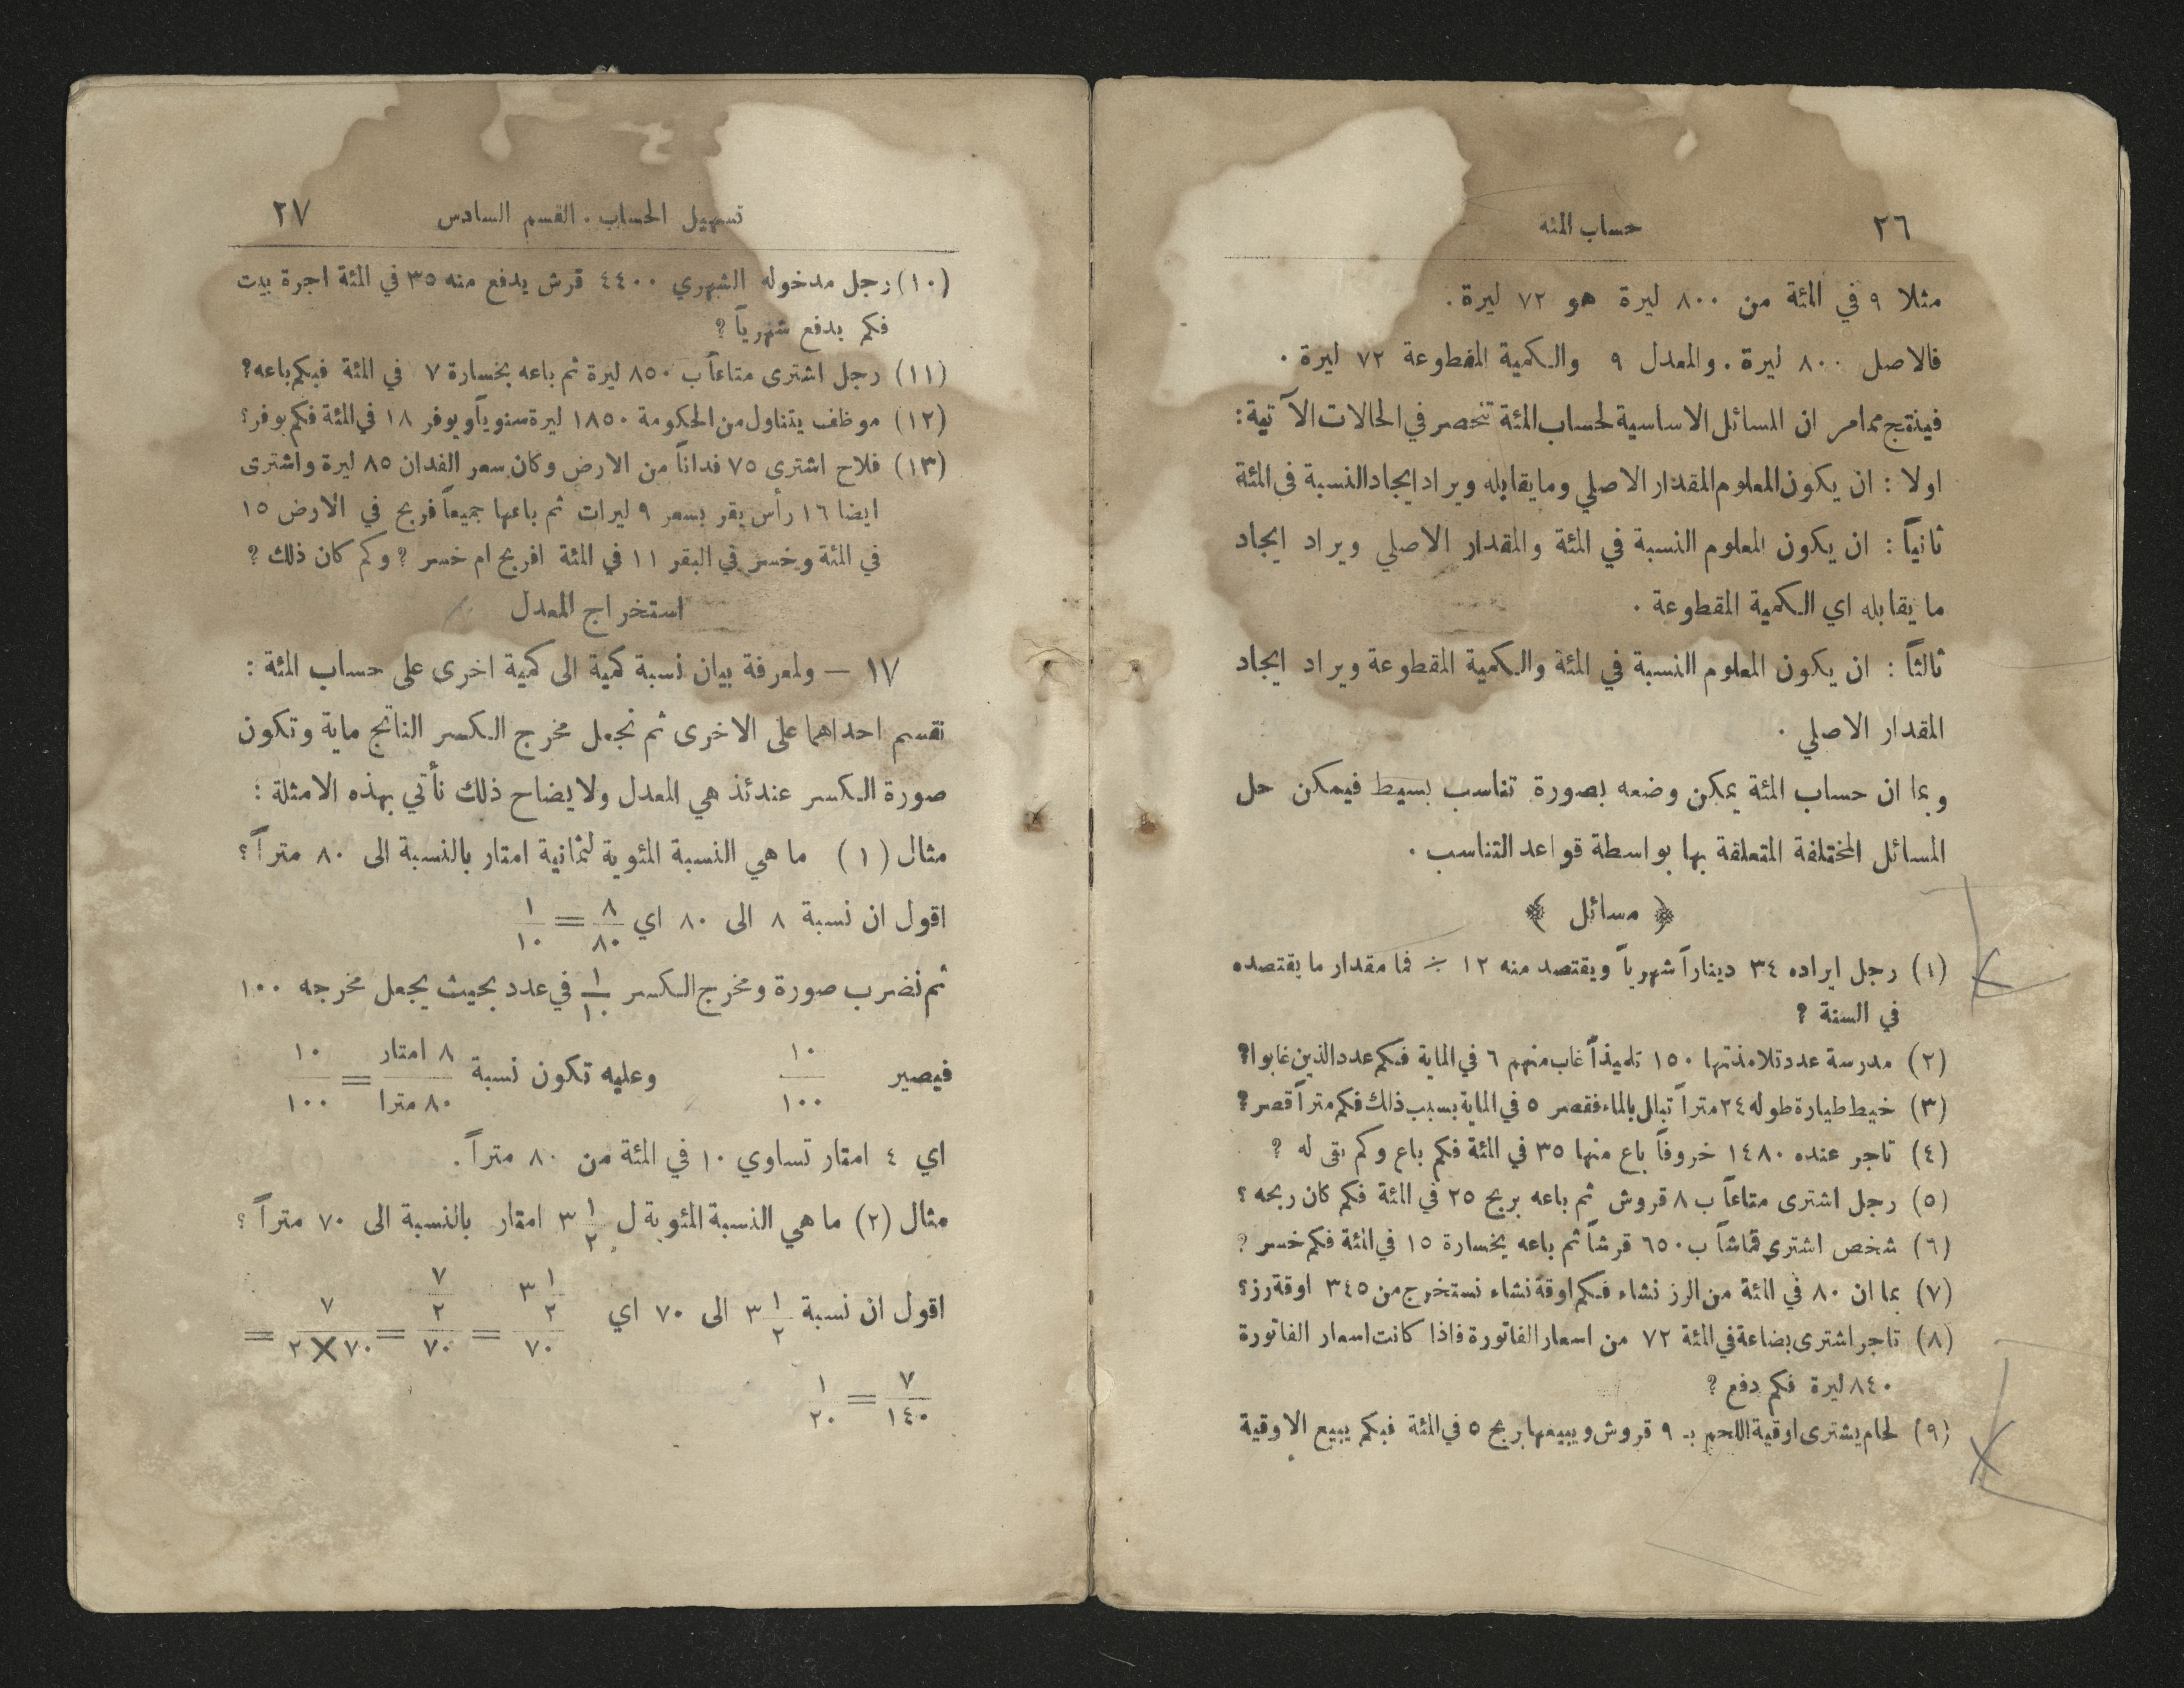 ٢٦
حساب المئه
مثلا ٩ في المئة من ٨٠٠ ليرة هو ٧٢ ليرة .
فالاصل ٨٠٠ ليرة . والمعدل ٩ والكمية المقطوعة ٧٢ ليرة .
فينتج مما مر ان المسائل الاساسية لحساب المئة تنحصر في الحالات الآتية :
اولا : ان يكون المعلوم المقدار الاصلي وما يقابله ويراد ايجاد النسبة في المئة
ثانياً : ان يكون المعلوم النسبة في المئة والمقدار الاصلي ويراد ايجاد
ما يقابله اي الكمية المقطوعة .
ثالثاً : ان يكون المعلوم النسبة في المئة والكمية المقطوعة ويراد ايجاد
المقدار الاصلي .
وبما ان حساب المئة يمكن وضعه بصورة تناسب بسيط فيمكن حل
المسائل المختلفة المتعلقة بها بواسطة قواعد التناسب .
﴿ مسائل ﴾
(١) رجل ايراده ٣٤ ديناراً شهرياً ويقتصد منه ١٢ ٪ فما مقدار ما يقتصده
في السنة ؟
(٢) مدرسة عدد تلامذتها ١٥٠ تلميذاً غاب منهم ٦ في الماية فكم عدد الذين غابوا؟
(٣) خيط طيارة طوله ٢٤ متراً تبلل بالماء فقصر ٥ في الماية بسبب ذلك فكم متراً قصر ؟
(٤) تاجر عنده ١٤٨٠ خروفاً باع منها ٣٥ في المئة فكم باع وكم بقى له ؟
(٥) رجل اشترى متاعاً ب ٨ قروش ثم باعه بربح ٢٥ في المئة فكم كان ربحه ؟
(٦) شخص اشترى قماشاً ب ٦٥٠ قرشاً ثم باعه بخسارة ١٥ في المئة فكم خسر ؟
(٧) بما ان ٨٠ في المئة من الرز نشاء فكم اوقة نشاء نستخرج من ٣٤٥ اوقة رز ؟
(٨) تاجر اشترى بضاعة في المئة ٧٢ من اسعار الفاتورة فاذا كانت اسعار الفاتورة
٨٤٠ ليرة فكم دفع ؟
(٩) لحام يشترى اوقية اللحم بـ ٩ قروش ويبيعها بربح ٥ في المئة فبكم يبيع الاوقية
تسهيل الحساب . القسم السادس
٢٧
(١٠) رجل مدخوله الشهري ٤٤٠٠ قرش يدفع منه ٣٥ في المئة اجرة بيت
فكم يدفع شهرياً ؟
(١١) رجل اشترى متاعاً ب ٨٥٠ ليرة ثم باعه بخسارة ٧ في المئة فبكم باعه ؟
(١٢) موظف يتناول من الحكومة ١٨٥٠ ليرة سنوياً ويوفر ١٨ في المئة فكم يوفر ؟
(١٣) فلاح اشترى ٧٥ فداناً من الارض وكان سعر الفدان ٨٥ ليرة واشترى
ايضا ١٦ رأس بقر بسعر ٩ ليرات ثم باعها جميعاً فربح في الارض ١٥
في المئة وخسر في البقر ١١ في المئة افربح ام خسر ؟ وكم كان ذلك ؟
استخراج المعدل
١٧ — ولمعرفة بيان نسبة كمية الى كمية اخرى على حساب المئة :
نقسم احداهما على الاخرى ثم نجعل مخرج الكسر الناتج ماية وتكون
صورة الكسر عندئذ هي المعدل ولايضاح ذلك نأتي بهذه الامثلة :
مثال (١) ما هي النسبة المئوية لثمانية امتار بالنسبة الى ٨٠ متراً ؟
اقول ان نسبة ٨ الى ٨٠ اي ٨/٨٠ = ١/١٠
ثم نضرب صورة ومخرج الكسر ١/١٠ في عدد بحيث يجعل مخرجه ١٠٠
فيصير ١٠/١٠٠ وعليه تكون نسبة ٨ امتار/٨٠ مترا = ١٠/١٠٠
اي ٤ امتار تساوي ١٠ في المئة من ٨٠ متراً .
مثال (٢) ما هي النسبة المئوية ل ٣ ١/٢ امتار بالنسبة الى ٧٠ متراً ؟
اقول ان نسبة ٣ ١/٢ الى ٧٠ اي ٣ ١/٢ / ٧٠ = ٧/٢ / ٧٠ = ٧ / ٧٠×٢ =
٧/١٤٠ = ١/٢٠